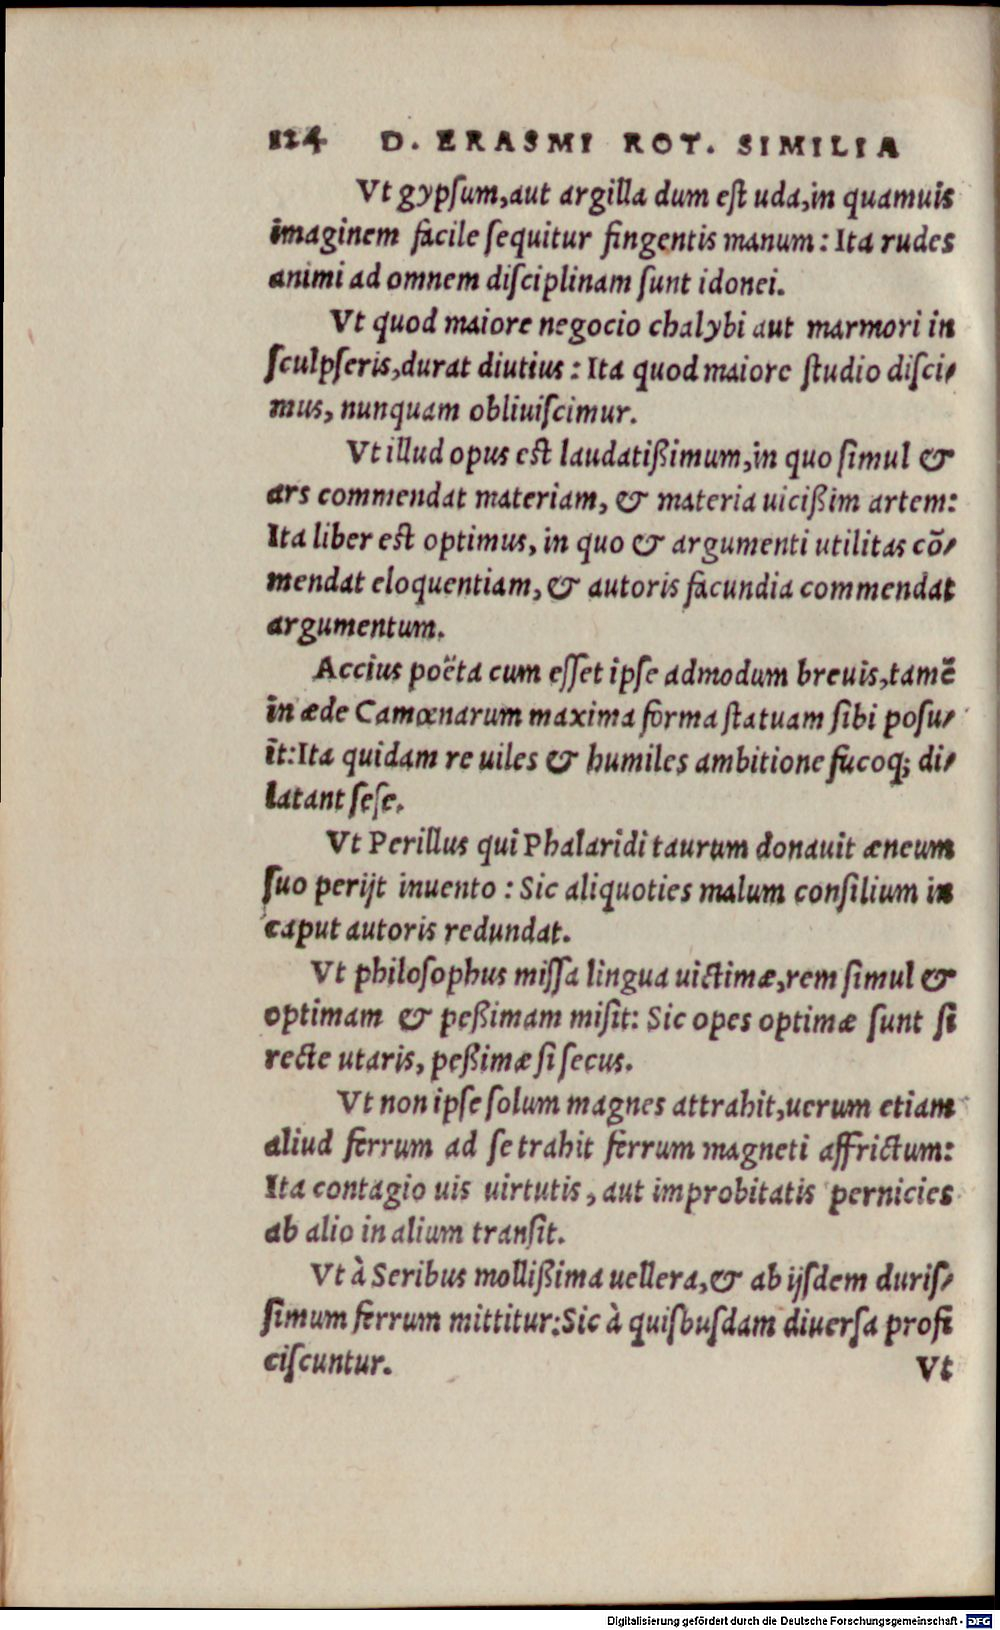 124 D. ERASMI ROT. SIMILIA
Vt gypſum,aut argilla dum eſt uda,in quamuis
imaginem facile ſequitur fingentis manum: Ita rudes
animi ad omnem diſciplinam ſunt idonei.
Vt quod maiore negocio chalybi aut marmori in
ſculpſeris,durat diutius: Ita quod maiore ſtudio diſci⸗
mus, nunquam obliuiſcimur.
Vt illud opus est laudatißimum,in quo ſimul &
ars commendat materiam, & materia uicißim artem:
Ita liber est optimus, in quo & argumenti utilitas cõ⸗
mendat eloquentiam, & autoris facundia commendat
argumentum.
Accius poëta cum eſſet ipſe admodum breuis,tamẽ
in æde Camœnarum maxima forma ſtatuam ſibi poſu⸗
it:Ita quidam re uiles & humiles ambitione fucoq; di⸗
latant ſeſe.
Vt Perillus qui Phalaridi taurum donauit æneum
ſuo perijt inuento: Sic aliquoties malum conſilium in
caput autoris redundat.
Vt philoſophus miſſa lingua uictimæ,rem ſimul &
optimam & peßimam miſit: Sic opes optimæ ſunt ſi
recte utaris, peßimæ ſi ſecus.
Vt non ipſe ſolum magnes attrahit,uerum etiam
aliud ferrum ad ſe trahit ferrum magneti affrictum:
Ita contagio uis uirtutis, aut improbitatis pernicies
ab alio in alium tranſit.
Vt à Seribus mollißima uellera,& ab ijſdem duriſ⸗
ſimum ferrum mittitur:Sic à quiſbuſdam diuerſa profi
ciſcuntur.
Vt
Digitalisierung gefördert durch die Deutsche Forschungsgemeinschaft - DFG